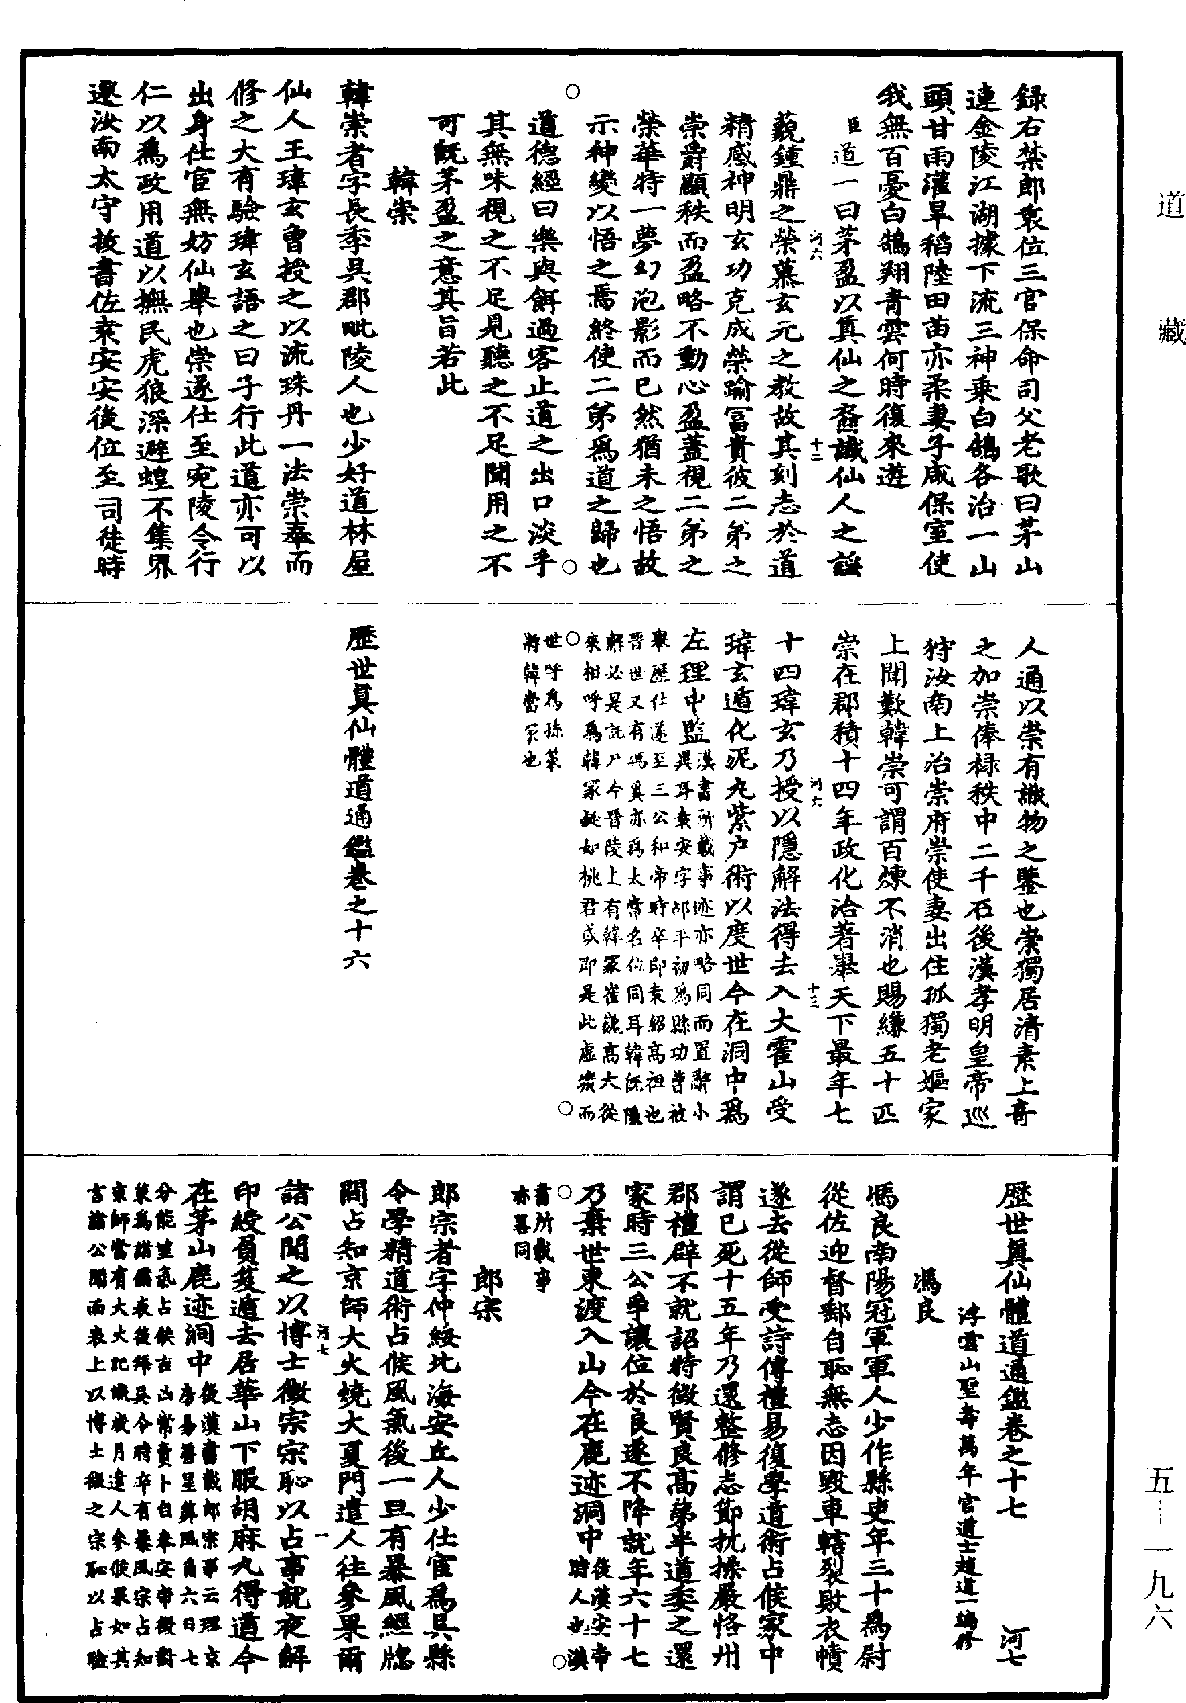 道藏
五—一九六
錄右禁郎裒位三官保命司父老歌曰茅山
連金陵江湖據下流三神乘白鵠各治一山
頭甘雨灌旱稻陸田苗亦柔妻子咸保室使
我無百憂白鵠翔青雲何時復來遊
臣道一曰茅盈以真仙之裔讖仙人之謡
藐鍾鼎之榮慕玄元之教故其刻志於道
河六 十二
精感神明玄功克成榮踰冨貴彼二弟之
崇爵顯秩而盈略不動心盈蓋視二弟之
榮華特一夢幻泡影而已然猶未之悟故
示神變以悟之焉終使二弟爲道之歸也
道德經曰樂與餌過客止道之出口淡乎
其無味視之不足見聽之不足聞用之不
可旣茅盈之意其旨若此
韓崇
韓崇者字長季吳郡毗陵人也少好道林屋
仙人王瑋玄曾授之以流珠丹一法崇奉而
修之大有驗瑋玄語之曰子行此道亦可以
出身仕官無妨仙舉也崇遂仕至宛陵令行
仁以爲政用道以撫民虎狼深避蝗不集界
遷汝南太守拔書佐袁安安後位至司徒時
人通以崇有識物之鑒也崇獨居清素上奇
之加崇俸祿秩中二千石後漢孝明皇帝巡
狩汝南上治崇府崇使妻出住孤獨老嫗家
上聞歎韓崇可謂百煉不消也賜縑五十匹
崇在郡積十四年政化洽著舉天下最年七
河六 十三
十四瑋玄乃授以隱解法得去入大霍山受
瑋玄遁化泥丸紫户術以度世今在洞中爲
左理中監漢書所載事迹亦略同而置辭小
異耳袁安字邵平初爲縣功曹被
舉歷仕遂至三公和帝時卒即袁紹高祖也
晉世又有馮良亦爲太常名位同耳韓旣隱
解必是託尸今晉陵上有韓冢崔嵬高大從
來相呼爲韓冢疑如桃君或即是此虛壙而
世呼爲孫策
將韓當冢也
歷世真仙體道通鑑卷之十六
歷世真仙體道通鑑卷之十七 河七
浮雲山聖壽萬年宮道士趙道一編修
馮良
馮良南陽冠軍軍人少作縣吏年三十爲尉
從佐迎督郵自恥無志因毀車轄裂敗衣幘
遂去從師受詩傳禮易復學道術占候家中
謂已死十五年乃還整修志節抗操嚴恪州
郡禮辟不就詔特徵賢良高第半道委之還
家時三公爭讓位於良遂不降就年六十七
乃棄世東渡入山今在鹿迹洞中後漢安帝
時人也漢
書所載事
亦畧同
郎宗
郎宗者字仲綏北海安丘人少仕宦爲吳縣
令學精道術占候風氣後一旦有暴風經牕
間占知京師大火燒大夏門遣人往參果爾
河七 一
諸公聞之以博士徵宗宗恥以占事就夜解
印綬負笈遁去居華山下服胡麻丸得道今
在茅山鹿迹洞中後漢書載郎宗事云理京
房易善星筭風角六日七
分能望氣占候吉凶常賣卜自奉安帝徵對
策爲諸儒表後拜吳令時卒有暴風宗占知
京師當有大火記識歲月遣人參候果如其
言諸公聞而表上以博士徵之宗恥以占驗